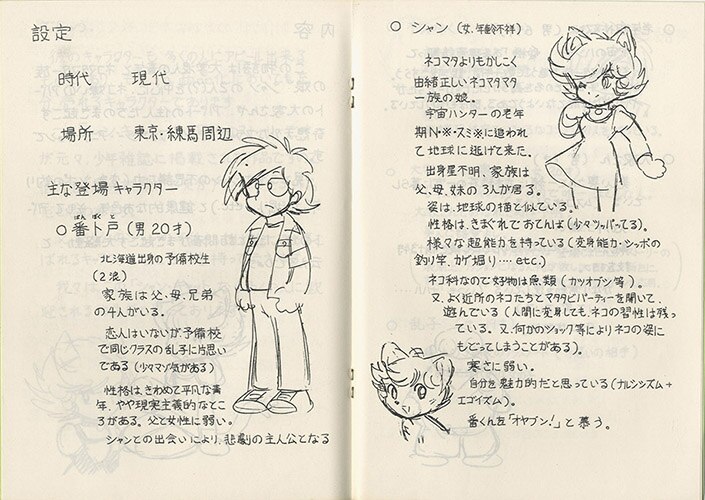 設定
時代　現代
場所　東京・練馬周辺
主な登場キャラクター
○番卜戸(男20才)
ばんぼくと
北海道出身の予備校生
(2浪)
家族は父・母・兄弟
の4人がいる。
恋人はいないが予備校
で同じクラスの乱子に片思い
である(少々マゾ気がある)
性格は、きわめて平凡な青
年、やや現実主義的なとこ
ろがある。父と女性に弱い。
シャンとの出会いにより、悲劇の主人公となる
○シャン(女.年齢不祥)
ネコマタよりもかしこく
由緒正しいネコマタマタ
一族の娘。
宇宙ハンターの老年
期N※・スミ※に追われ
て地球に逃げて来た。
出身星不明、家族は
父、母、妹の3人が居る。
姿は、地球の猫と似ている。
性格は、きまぐれでおてんば(少々ツッパってる)。
様々な超能力を持っている(変身能力・シッポの
釣り竿、カゲ堀り‥‥etc.)
ネコ科なので好物は魚類(カツオブシ等)。
又、よく近所のネコたちとマタタビパーティーを開いて、
遊んでいる(人間に変身しても、ネコの習性は残っ
ている。又、何かのショック等によりネコの姿に
もどってしまうことがある)。
寒さに弱い。
自分を魅力的だと思っている(ナルシシズム+
エゴイズム)。
番くんを「オヤブン!」と慕う。